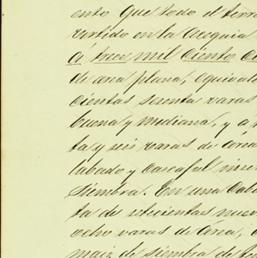 ento que todo el terre
vertido en la acequia
á trece mil ciento ci
de una plana, equivale
cientas senta varas
buena y mediana, y a
ta y seis varas de
labado y Cascajal
siembra. En una
ta de setecientas nuev
ocho varas de
maiz de siembra de